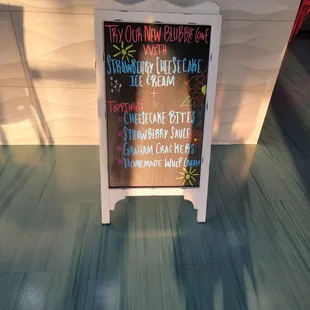 Try Our New Blubble Cone
With
Strawberry Cheesecake
Ice Cream
+
Toppings:
Cheesecake Bites
Strawberry Sauce
Graham Crackers
Homemade Whip Cream